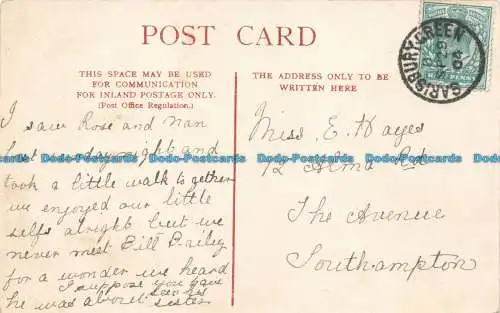 POST CARD
THIS SPACE MAY BE USED
FOR COMMUNICATION
FOR INLAND POSTAGE ONLY.
(Post Office Regulation.)
THE ADDRESS ONLY TO BE
WRITTEN HERE
SARISBURY GREEN
HALF PENNY
I saw Rose and Nan
last night and
took a little walk to gether
we enjoyed our little
selfs alright but we
never met Bill Bailey
for a wonder we heard
he was about
I suppose you have
seen his
sister
Miss E. Hayes
12 Alma Rd
The Avenue
Southampton
Bodo-Postcards Bodo-Postcards Bodo-Postcards